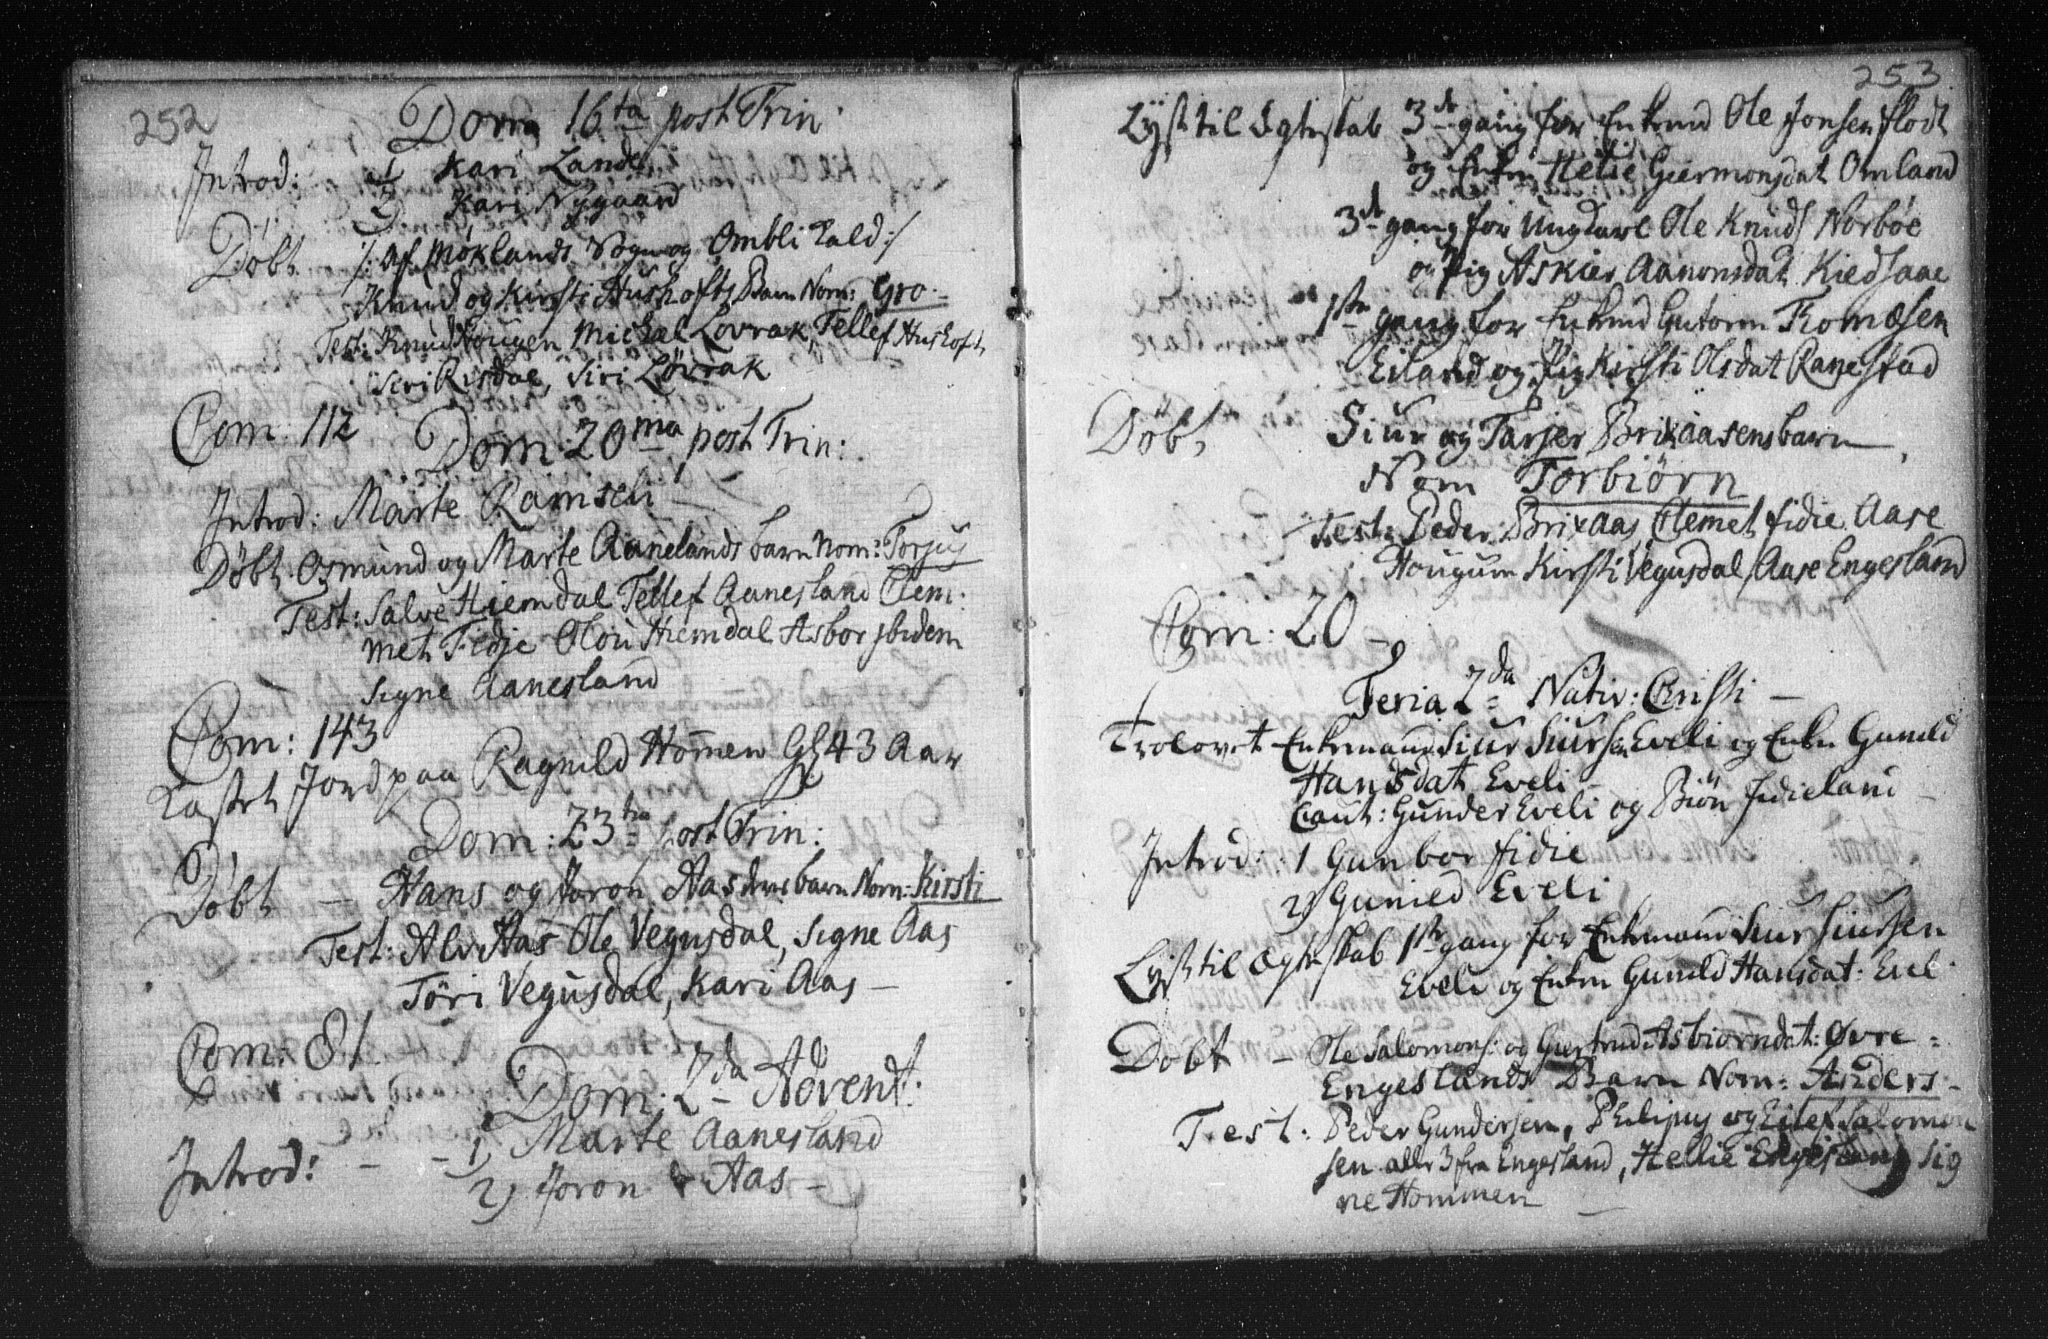 252
Dom 16ta post Trin:
Introd: 1 Kari Lande
2 Kari Nygaard
Døbt /: af Møklands Sogn og Ombli Kald:/
Knud og Kirsti Huskofts Barn Nom: Gro
Test: Knud Hougen Michæl Lovrak, Tellef Huskoft
Siri Risdal, Siri Løvrak
Com: 112
Dom: 20ma post Trin:
Introd: Marte Ramseli
Døbt Osmund og Marte Aanelands barn Nom: Torjus
Test: Salve Hiemdal Tellef Aanesland Clem-
met Fidje Olou Hiemdal Asbor ibidem
Signe Aanesland
Com: 143
Kastet Jord paa Ragnild Hommen Gl 43 Aar
Dom: 23tia post Trin:
Døbt - Hans og Joron Aasdens barn Nom: Kirsti
Test: Alv Aas Ole Vegusdal, Signe Aas
Töri Vegusdal, Kari Aas -
Com: 81
Dom: 2da Advent:
Introd: - - 1, Marte Aanesland
2, Joron Aas -
253
Lyst til Egteskab 3de gang for Enkmd Ole Jonsen Flodt
og Enken Helie Giermonsdat Omland
3de gang for Ungkarl Ole Knuds Norbøe
og Pig Askier Aanonsdat Kiedsaae
1ste gang for Enkmd Gutorm Tomæsen
Eiland og Pig Kirsti Olsdat Ranestad
Døbt Siur og Tarjer Brixaasens barn
Nom Torbiörn
Test: Peder Brixaas, Clemet fidie Aase
Hougum Kirsti Vegusdal, Aase Engesland
Com: 20 -
Feria 2da Nativ: Christi -
Trolovet Enkemand Siur Siursen Eveli og Enken Gunild
Hansdat Eveli -
Caut: Gunder Eveli og Biön Fidieland -
Introd: 1 Gunbor fidie
2, Gunild Eveli
Lyst til Egteskab 1ste gang for Enkemand Siur Siursen
Eveli og Enken Gunild Hansdat: Evel
Dobt - Ole Salomons: og Giertrud Asbiorndat: Øvre =
Engeslands Barn Nom: Anders -
Test: Peder Gundersen, Philipus og Eilef Salomon
sen alle 3 fra Engesland, Hellie Engesland Sig
ne Hommen -